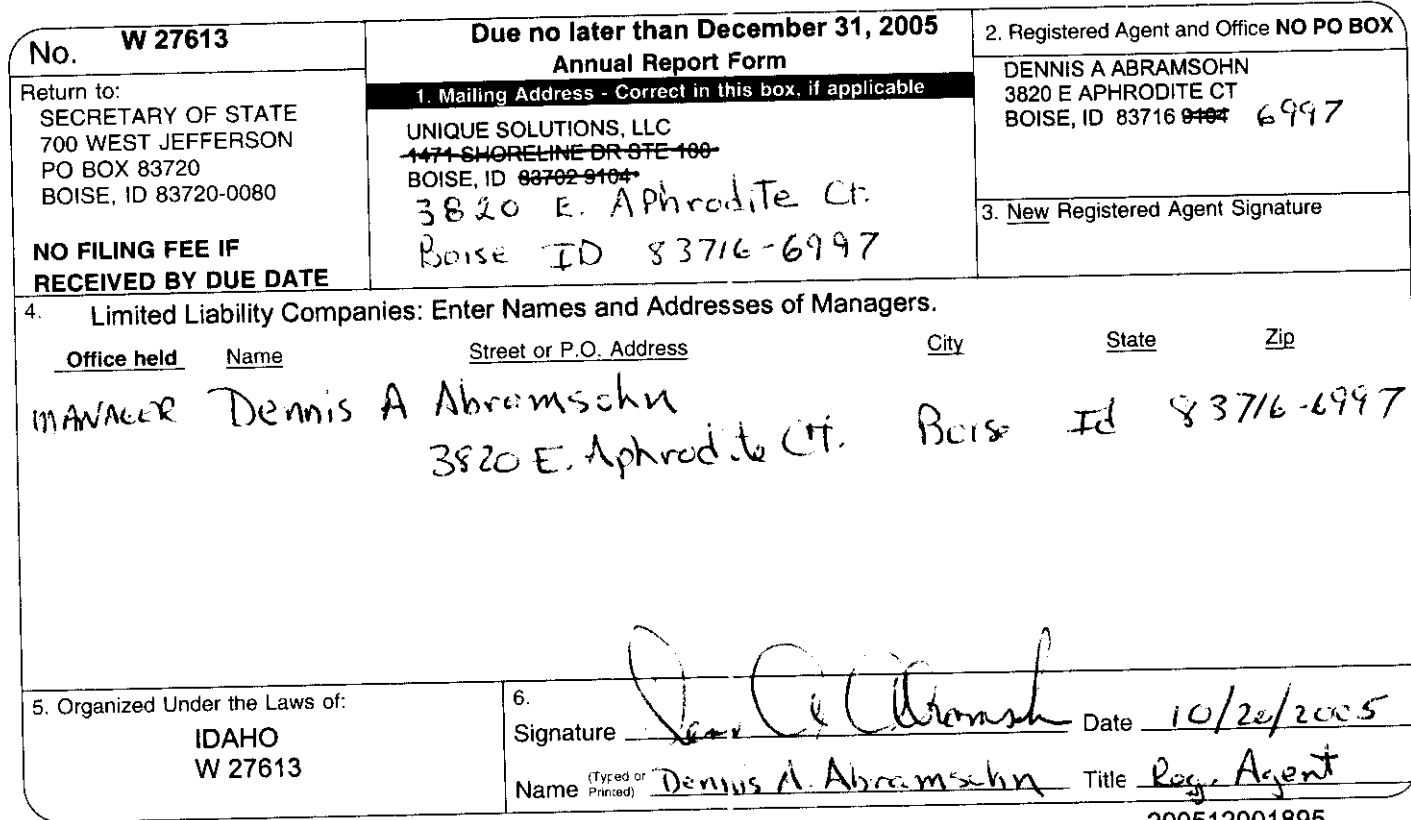 No. W 27613
Return to:
SECRETARY OF STATE
700 WEST JEFFERSON
PO BOX 83720
BOISE, ID 83720-0080
NO FILING FEE IF
RECEIVED BY DUE DATE
Due no later than December 31, 2005
Annual Report Form
1. Mailing Address - Correct in this box, if applicable
UNIQUE SOLUTIONS, LLC
1471 SHORELINE DR STE 100
BOISE, ID 83702 9104
3820 E. APhrodiTe Ct.
Boise ID 83716-6997
2. Registered Agent and Office NO PO BOX
DENNIS A ABRAMSOHN
3820 E APHRODITE CT
BOISE, ID 83716 9104 6997
3. New Registered Agent Signature
4. Limited Liability Companies: Enter Names and Addresses of Managers.
Office held Name Street or P.O. Address City State Zip
MANAGER Dennis A Abramsohn
3820 E. Aphrodite Ct. Boise Id 83716-6997
5. Organized Under the Laws of:
IDAHO
W 27613
6.
Signature Date 10/20/2005
Name (Typed or Printed) Dennis A. Abramsohn Title Reg. Agent
200512001895